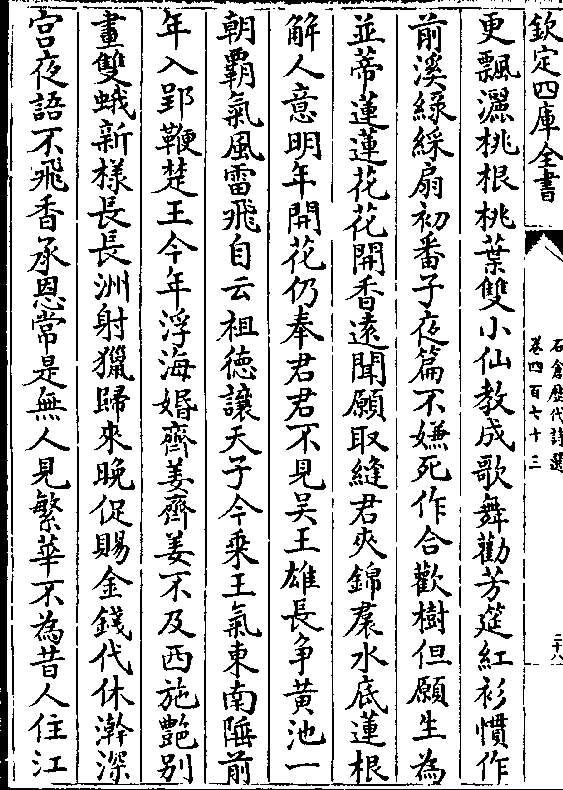 欽定四庫全書
石倉歴代詩選
卷四百七十三
二十八
更飄灑桃根桃葉雙小仙教成歌舞勸芳筵紅衫慣作
前溪緑綵扇初番子夜篇不嫌死作合歡樹但願生為
並蒂蓮蓮花花開香遠聞願取縫君夾錦裠水底蓮根
解人意明年開花仍奉君君不見吴王雄長争黄池一
朝霸氣風雷飛自云祖徳讓天子今乘王氣東南陲前
年入郢鞭楚王今年浮海婚齊姜齊姜不及西施艷别
畫雙蛾新様長長洲射獵歸來晚促賜金錢代休澣深
宫夜語不飛香承恩常是無人見繁華不為昔人住江